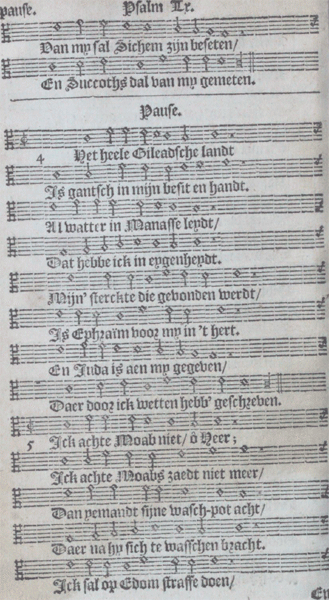 pause. Psalm Lx.
Van my sal Sichem zijn beseten/
En Succoths dal van my gemeten.
Pause.
4 Het heele Gileadsche landt
Is gantsch in mijn besit en handt.
Al watter in Manasse leydt/
Dat hebbe ick in eygenheydt.
Mijn' sterckte die gevonden werdt/
Is Ephraïm voor my in 't hert.
En Juda is aen my gegeven/
Daer door ick wetten hebb' geschreven.
5 Ick achte Moab niet/ ô Heer;
Ick achte Moabs zaedt niet meer/
Dan yemandt sijne wasch-pot acht/
Daer na hy sich te wasschen bracht.
Ick sal op Edom straffe doen/